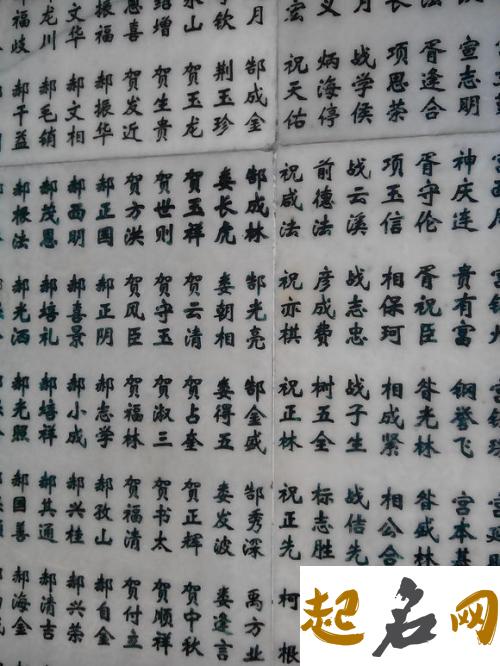 宣志明 神庆连 贵有富 钢誉飞 宫本基
胥逢合 胥守伦 胥祝臣 昝光林 昝盛林
项思荣 项玉信 相保珂 相成紧 相公合
月 战学侯 战云溪 战志忠 战子生 战信先
义 炳海停 前德法 彦成费 树五全 标志胜
宏 祝天佑 祝咸法 祝亦棋 祝正林 祝正先 柯根
月 郜成金 郜成林 郜光亮 郜金盛 郜秀深 禹方业
钦 荆玉珍 娄长虎 娄朝相 娄得五 娄发波 娄逢言
山 贺玉龙 贺玉祥 贺云清 贺占奎 贺正辉 贺中秋
绍增 贺生贵 贺世则 贺守玉 贺淑三 贺书太 贺顺祥
恩喜 贺发近 贺方洪 贺凤臣 贺福林 贺福清 贺付立
振福 郝振华 郝正国 郝正阴 郝志学 郝孜山 郝自金
文华 郝文相 郝西明 郝喜景 郝小成 郝兴桂 郝兴荣
龙川 郝毛销 郝茂恩 郝培礼 郝培祥 郝其通 郝清吉
福岐 郝干益 郝根法 郝光洒 郝光照 郝国善 郝海金
起名网